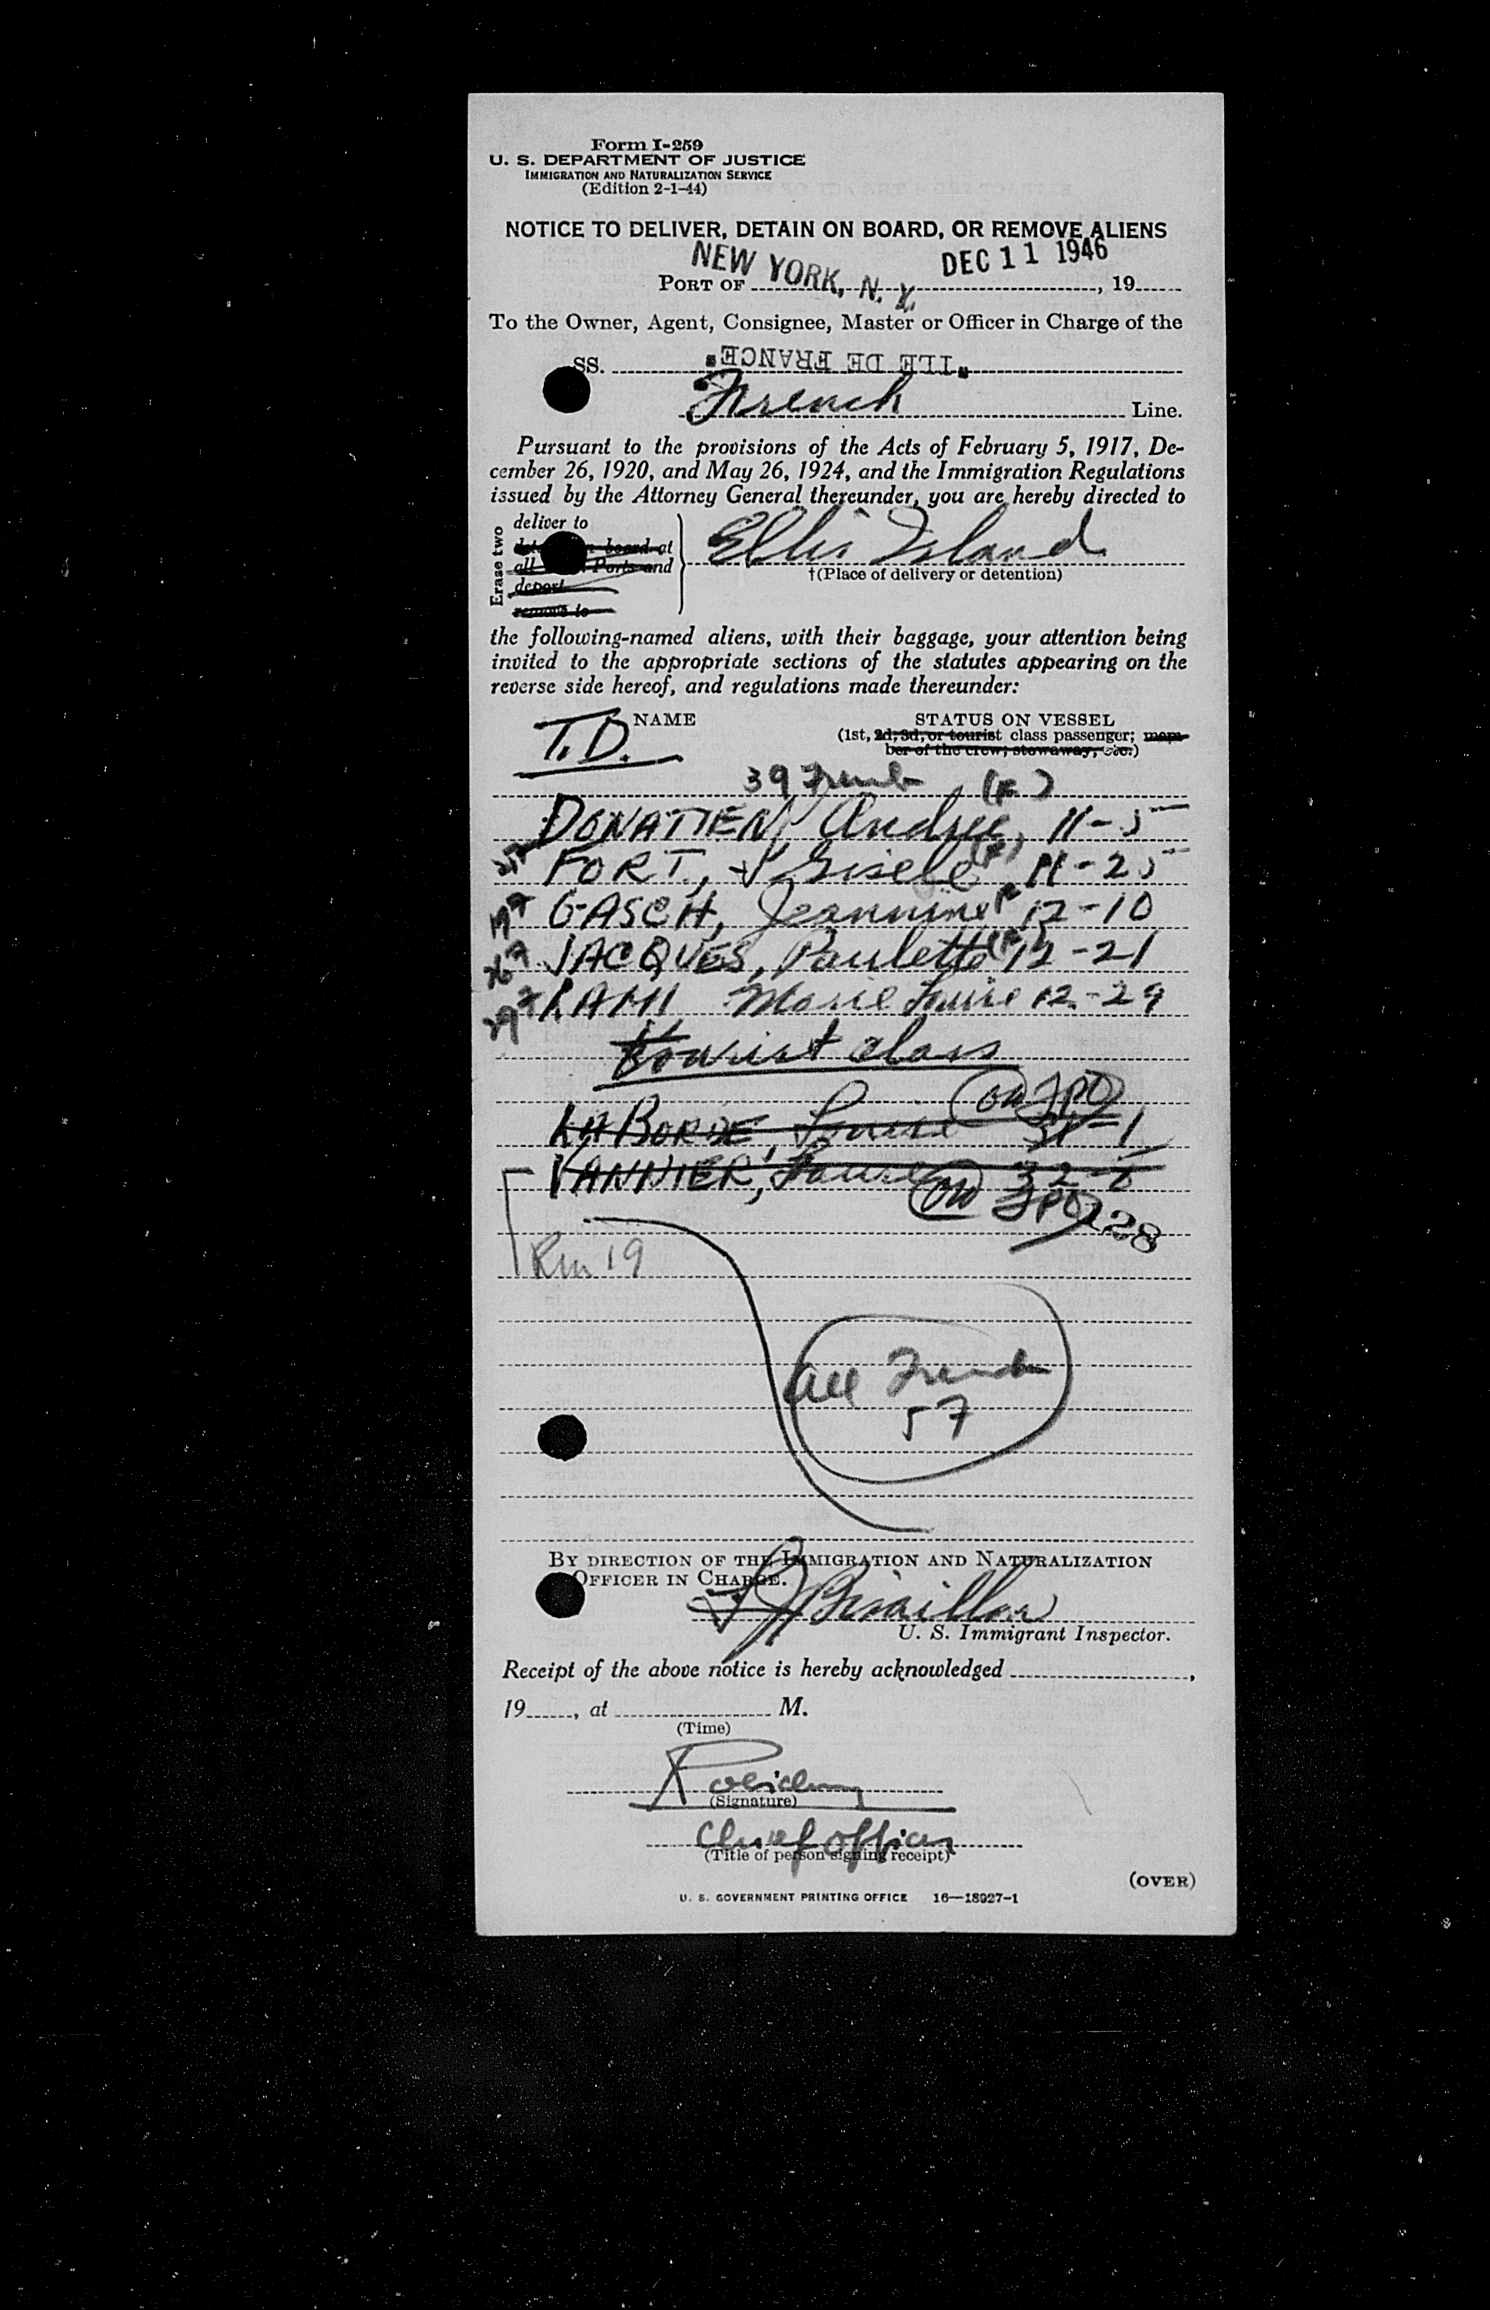 Form I-259
U. S. DEPARTMENT OF JUSTICE
IMMIGRATION AND NATURALIZATION SERVICE
(Edition 2-1-44)
NOTICE TO DELIVER, DETAIN ON BOARD, OR REMOVE ALIENS
NEW YORK, N. Y. DEC 11 1946
PORT OF , 19
To the Owner, Agent, Consignee, Master or Officer in Charge of the
SS. "ILE DE FRANCE"
French Line.
Pursuant to the provisions of the Acts of February 5, 1917, De-
cember 26, 1920, and May 26, 1924, and the Immigration Regulations
issued by the Attorney General thereunder, you are hereby directed to
Erase two
deliver to
board at
all Ports and
deport
remove to
Ellis Island
†(Place of delivery or detention)
the following-named aliens, with their baggage, your attention being
invited to the appropriate sections of the statutes appearing on the
reverse side hereof, and regulations made thereunder:
T.D. NAME STATUS ON VESSEL
(1st, 2d, 3d, or tourist class passenger; mem-
ber of the crew; stowaway, etc.)
39 French (F)
DONATIEN, Andree, 11-5
FORT, Gisele (F) 11-25
GASCH, Jeannine 12-10
JACQUES, Paulette (F) 12-21
RAMI Marie Louise 12-29
tourist class
LABORDE, Louise 31-1
VANNIER, 32-
128
Rm 19
all French
57
BY DIRECTION OF THE IMMIGRATION AND NATURALIZATION
OFFICER IN CHARGE.
U. S. Immigrant Inspector.
Receipt of the above notice is hereby acknowledged ,
19 , at M.
(Time)
(Signature)
Chief Officer
(Title of person signing receipt)
(OVER)
U. S. GOVERNMENT PRINTING OFFICE 16—18927-1